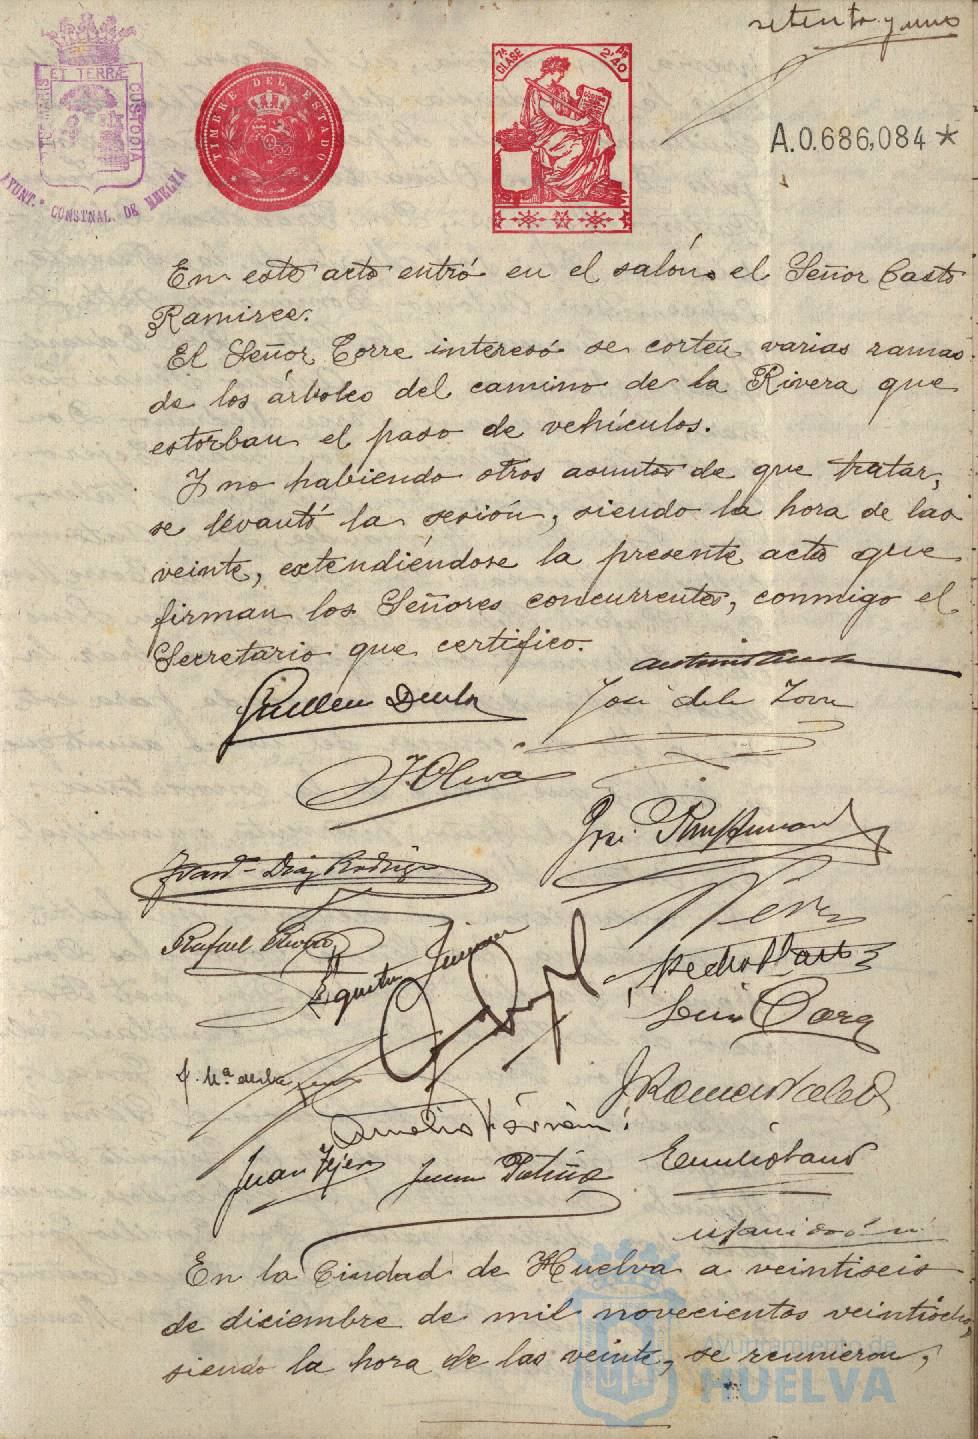 setenta y uno
PORTUS MARIS ET TERRÆ CUSTODIA
AYUNT.º CONSTNAL. DE HUELVA
TIMBRE DEL ESTADO
7ª CLASE 2'40 PTS
A.0.686,084 *
En este acto entró en el salón el Señor Casto
Ramirez.
El Señor Torre interesó se corten varias ramas
de los árboles del camino de la Rivera que
estorban el paso de vehículos.
Y no habiendo otros asuntos de que tratar,
se levantó la sesión, siendo la hora de las
veinte, extendiéndose la presente acta que
firman los Señores concurrentes, conmigo el
Secretario que certifico.
José de la Torre
J. Oliva
José
Franº Díaz Rodrígz
Rafael
Agustín Jiménez
Pedro
Luis
J. Mª de la
Juan Tejero
Juan Patiño
En la Ciudad de Huelva a veintiseis
de diciembre de mil novecientos veintiocho,
siendo la hora de las veinte, se reunieron,
Ayuntamiento de
HUELVA